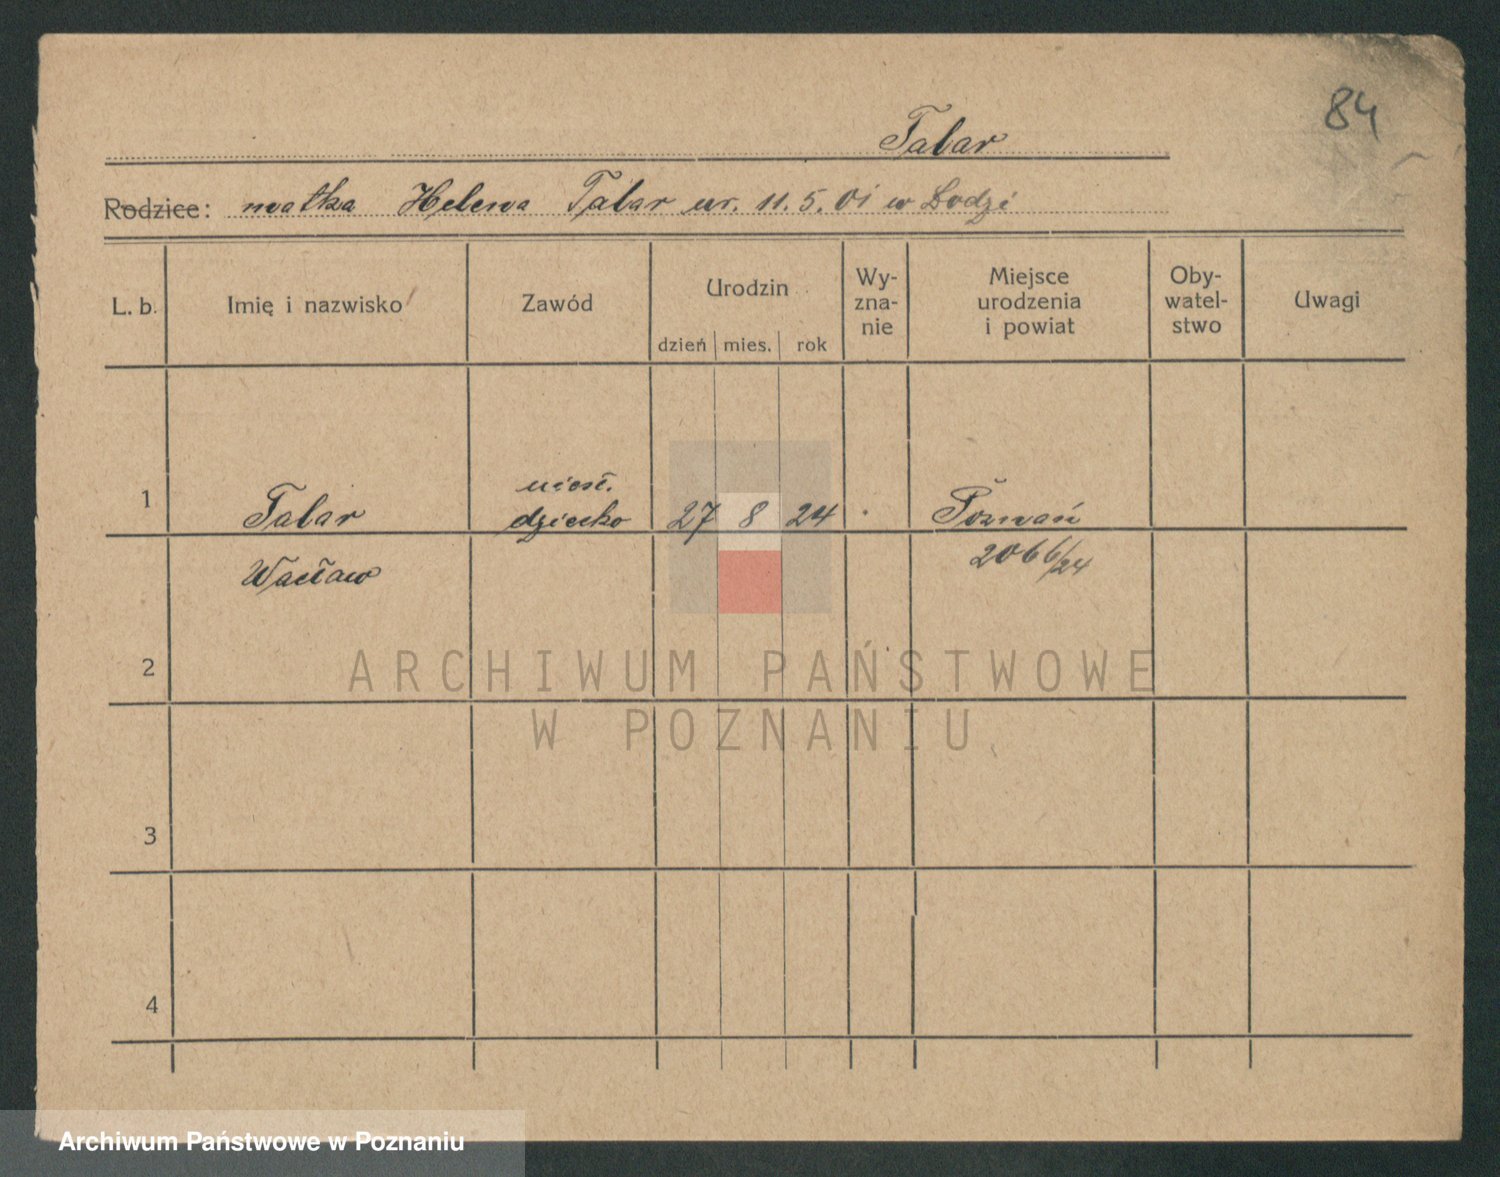 84
Talar
Rodzice: matka Helena Talar ur. 11.5.01 w Łodzi
L. b. Imię i nazwisko Zawód Urodzin dzień mies. rok Wy-
zna-
nie Miejsce
urodzenia
i powiat Oby-
watel-
stwo Uwagi
1 Talar nieśl.
dziecko 27 8 24 Poznań
Wacław 2066/24
2
3
4
ARCHIWUM PAŃSTWOWE
W POZNANIU
Archiwum Państwowe w Poznaniu